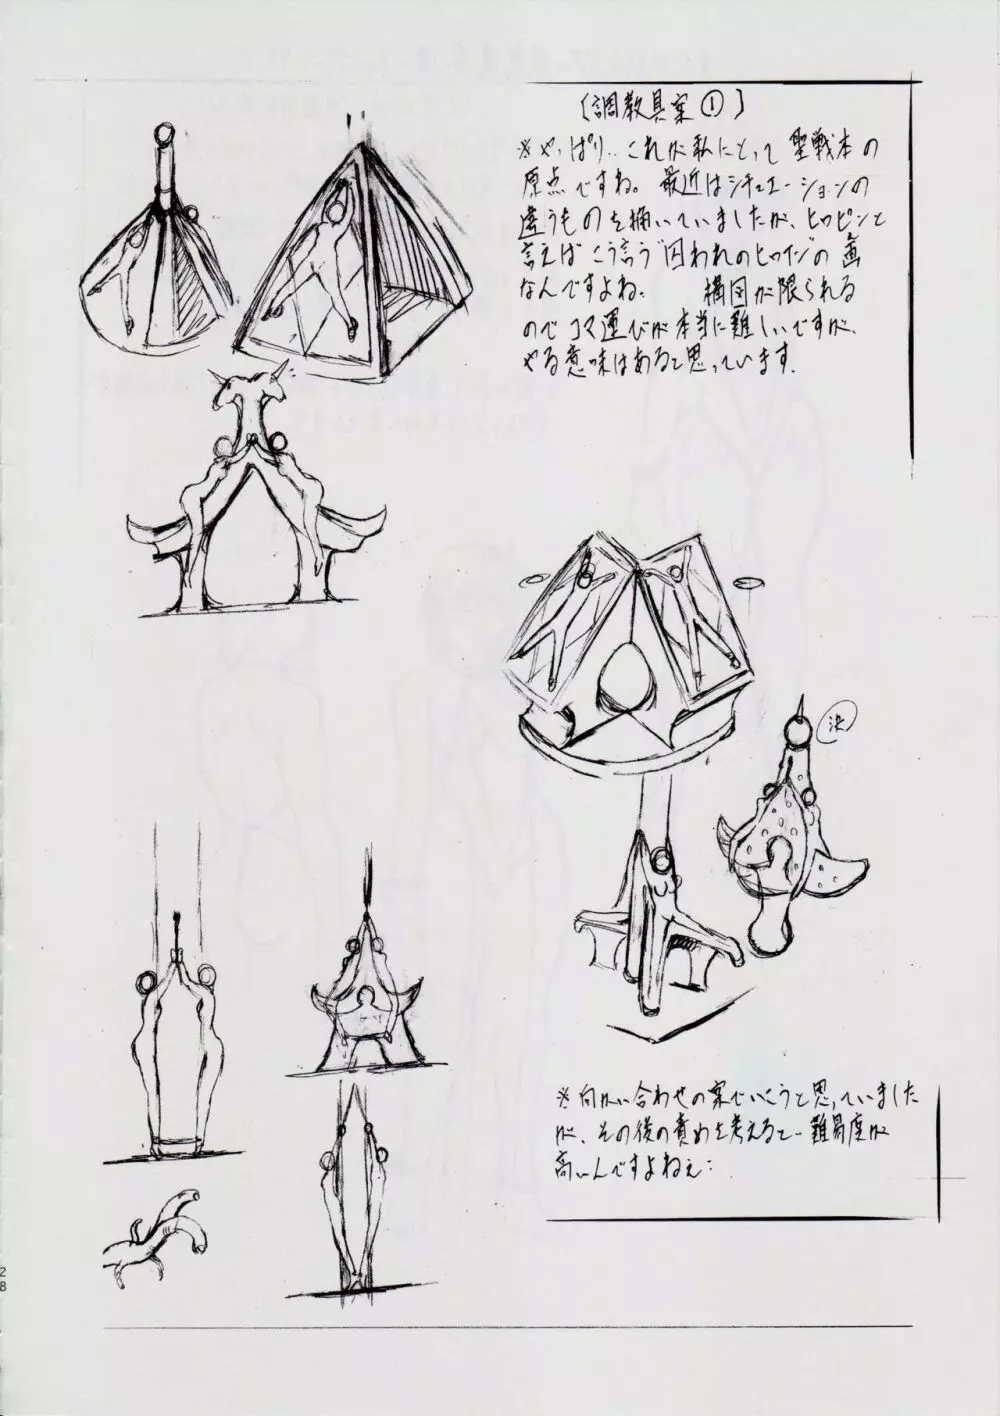 〔調教具案①〕
※やっぱり‥これが私にとって聖戦本の
原点ですね。最近はシチュエーションの
違うものを描いていましたが、ヒロピンと
言えばこう言う“囚われのヒロイン”の画
なんですよね. 構図が限られる
のでコマ運びが本当に難しいですが、
やる意味はあると思っています.
決
※向かい合わせの案でいこうと思っていました
が、その後の責めを考えると‥難易度が
高いんですよねぇ‥
28